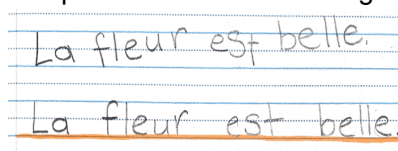 La fleur est belle.
La fleur est belle.